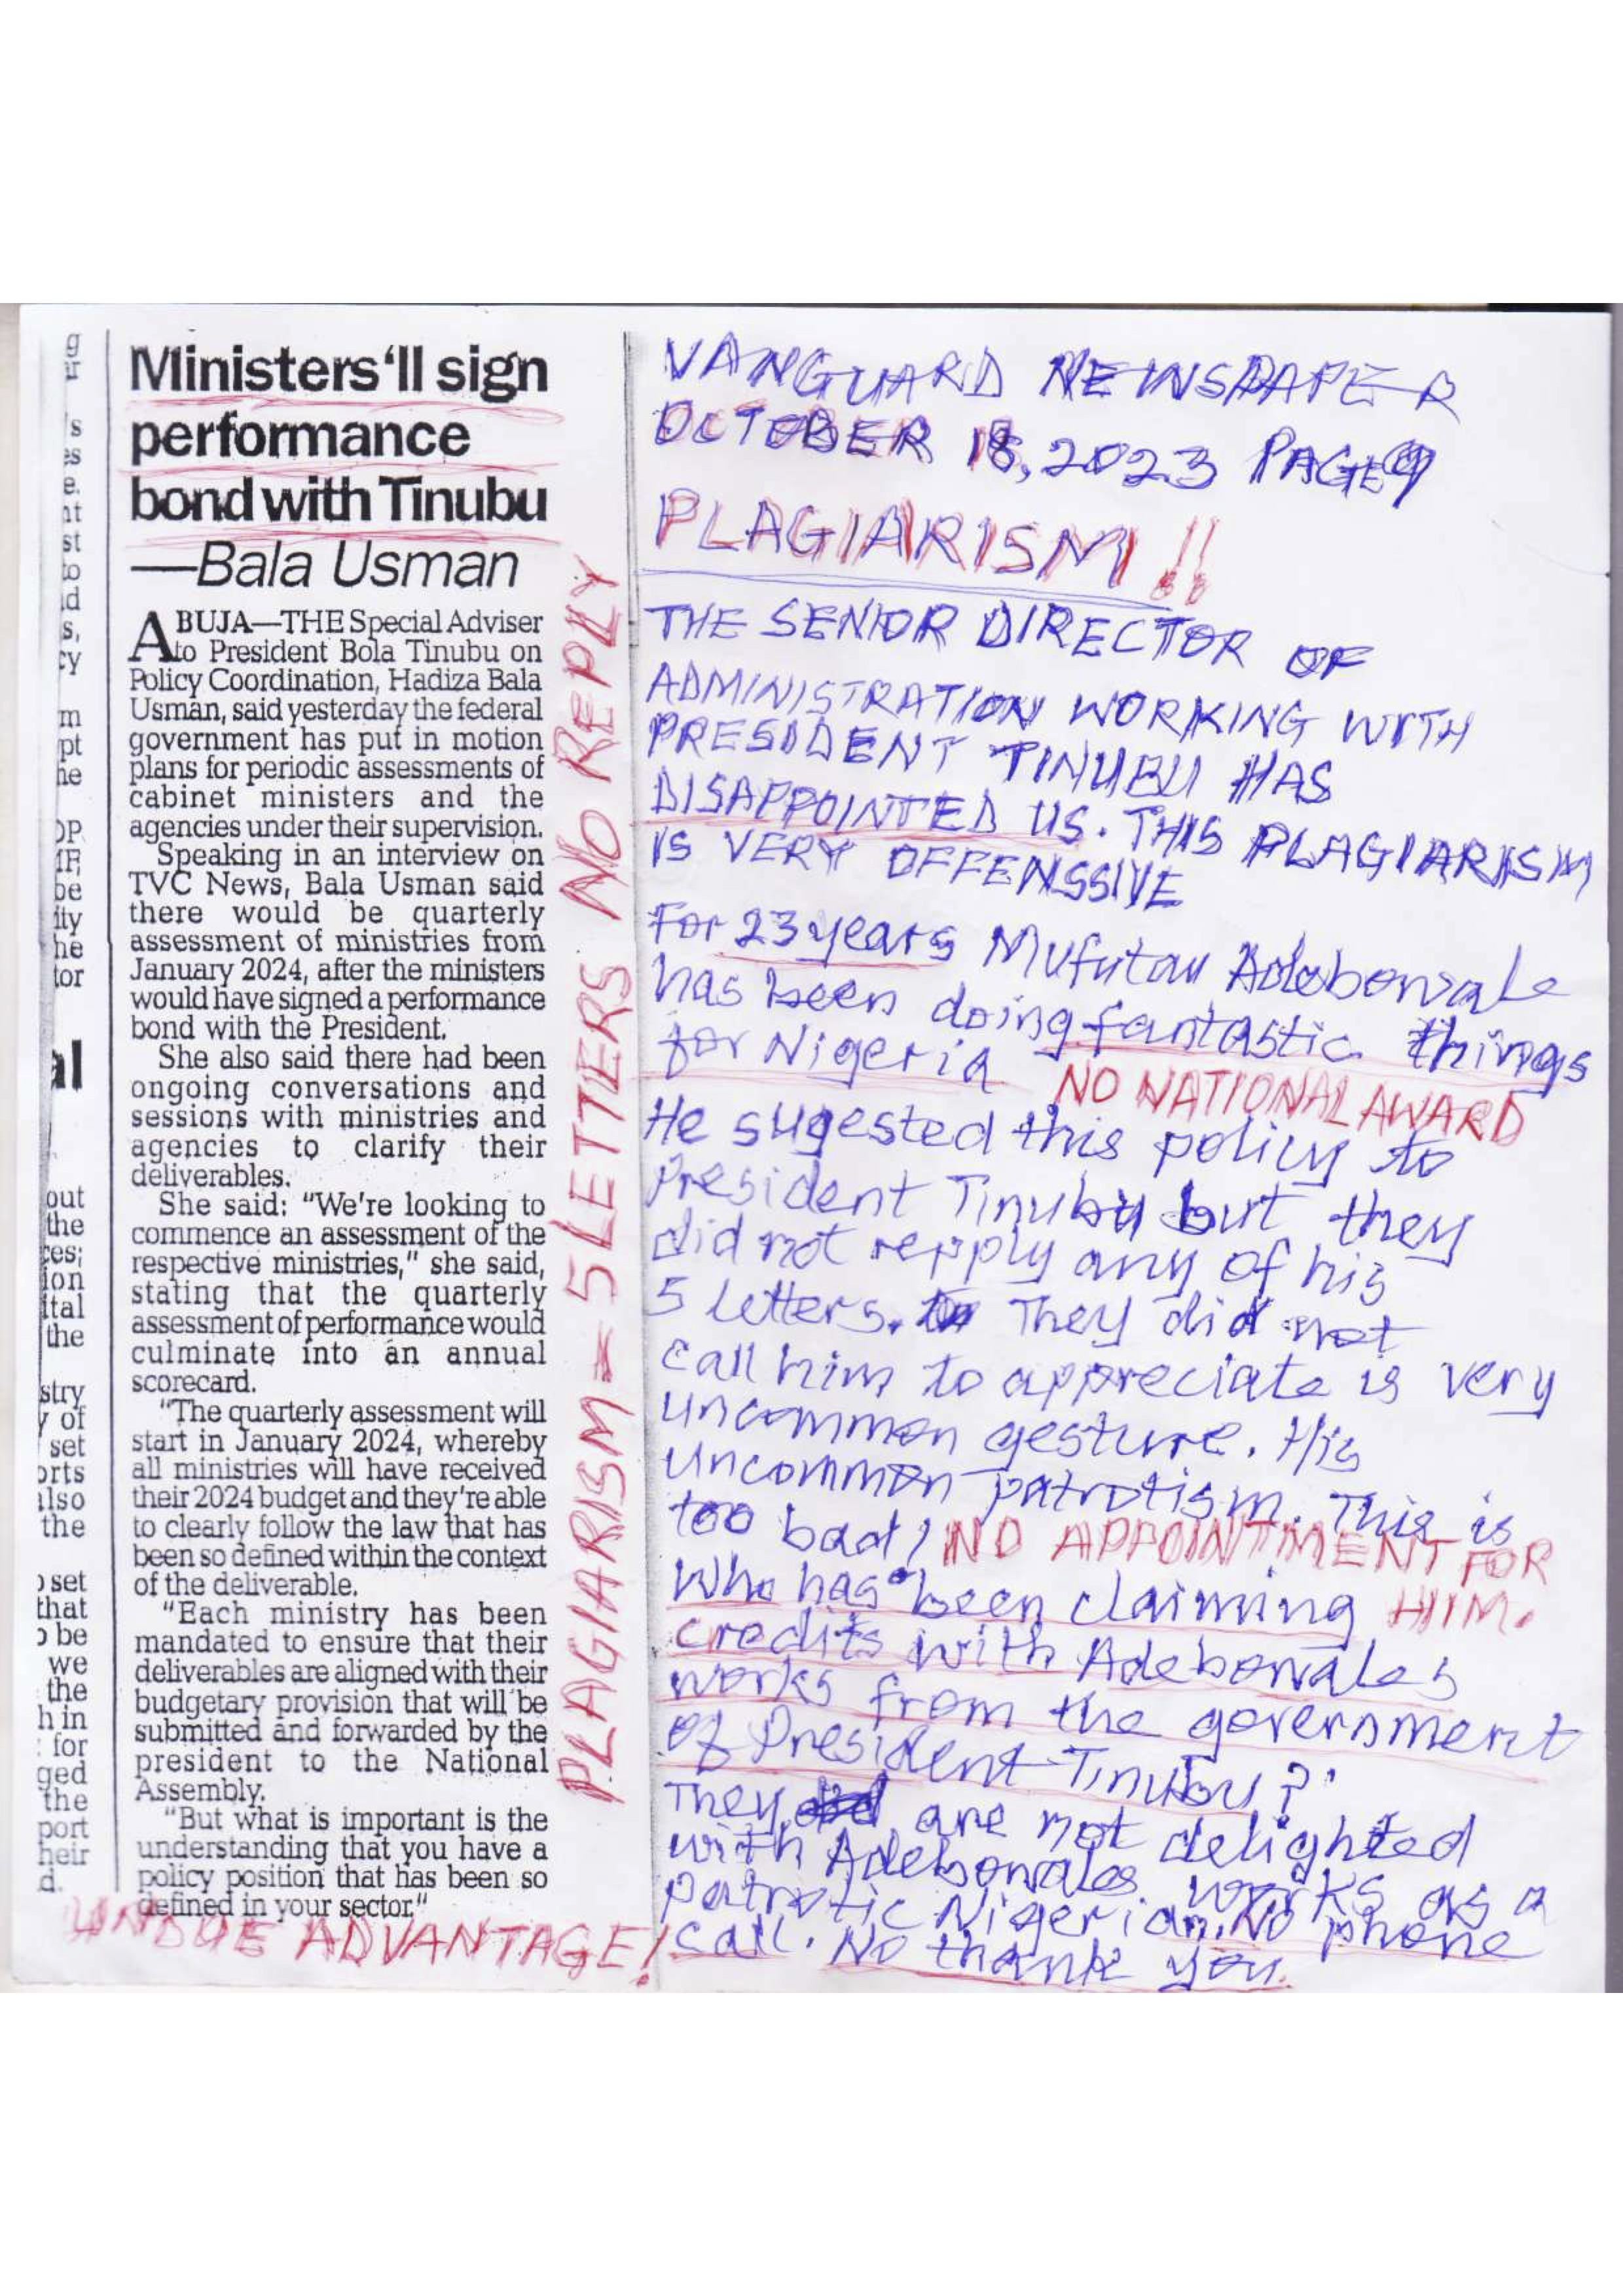 g
's
es
e.
nt
st
to
id
s,
cy
m
pt
he
OP
be
ity
he
tor
al
out
the
ces;
ion
ital
the
stry
y of
set
orts
also
the
o set
that
o be
we
the
h in
: for
ged
the
port
heir
d.
Ministers'll sign
performance
bond with Tinubu
—Bala Usman
ABUJA—THE Special Adviser
to President Bola Tinubu on
Policy Coordination, Hadiza Bala
Usman, said yesterday the federal
government has put in motion
plans for periodic assessments of
cabinet ministers and the
agencies under their supervision.
Speaking in an interview on
TVC News, Bala Usman said
there would be quarterly
assessment of ministries from
January 2024, after the ministers
would have signed a performance
bond with the President.
She also said there had been
ongoing conversations and
sessions with ministries and
agencies to clarify their
deliverables.
She said: "We're looking to
commence an assessment of the
respective ministries," she said,
stating that the quarterly
assessment of performance would
culminate into an annual
scorecard.
"The quarterly assessment will
start in January 2024, whereby
all ministries will have received
their 2024 budget and they're able
to clearly follow the law that has
been so defined within the context
of the deliverable.
"Each ministry has been
mandated to ensure that their
deliverables are aligned with their
budgetary provision that will be
submitted and forwarded by the
president to the National
Assembly.
"But what is important is the
understanding that you have a
policy position that has been so
defined in your sector."
UNDUE ADVANTAGE!
PLAGIARISM = 5 LETTERS NO REPLY
VANGUARD NEWSPAPER
OCTOBER 18, 2023 PAGE 9
PLAGIARISM!!
THE SENIOR DIRECTOR OF
ADMINISTRATION WORKING WITH
PRESIDENT TINUBU HAS
DISAPPOINTED US. THIS PLAGIARISM
IS VERY OFFENSSIVE
For 23 years Mufutau Adebowale
has been doing fantastic things
for Nigeria
NO NATIONAL AWARD
He sugested this policy to
President Tinubu but they
did not repply any of his
5 letters. They did not
call him to appreciate is very
uncommon gesture. His
uncommon patrotism. This is
too bad! NO APPOINTMENT FOR
HIIM.
Who has been claiming
credits with Adebowales
works from the government
of President Tinubu?
They are not delighted
with Adebowales works as a
patrotic Nigerian. No phone
call. No thank you.